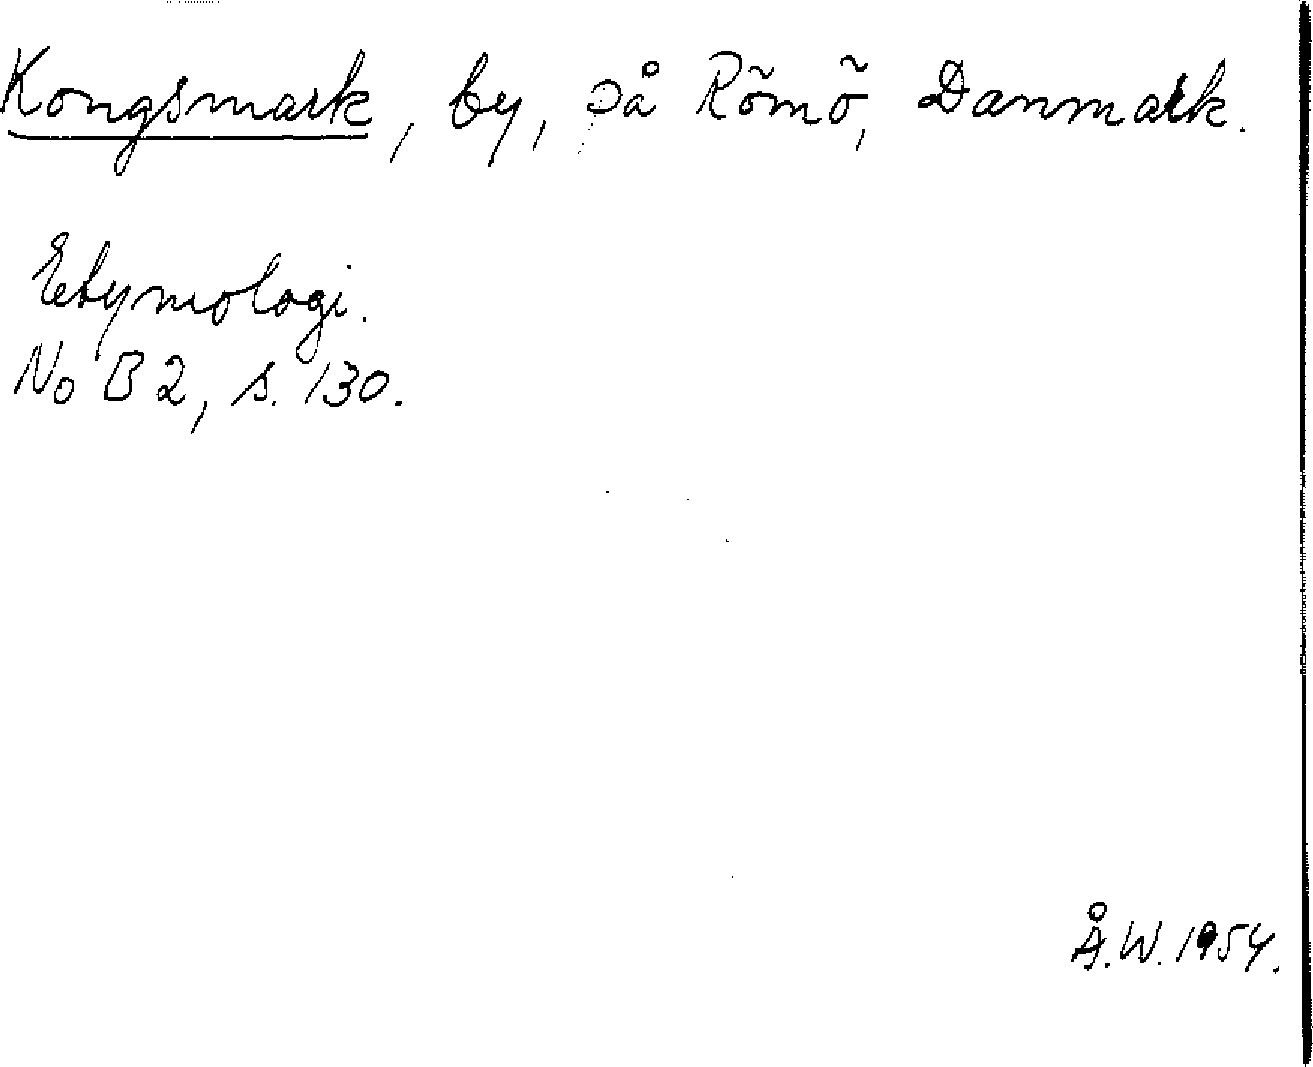 Kongsmark, by, på Römö, Danmark.
Etymologi.
No B 2, s. 130.
Å.W. 1954.